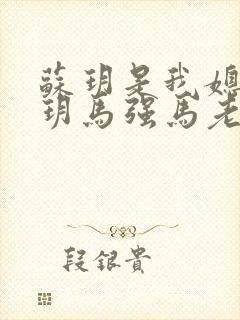 蘇玥是我媳
玥馬强馬老
段銀貴